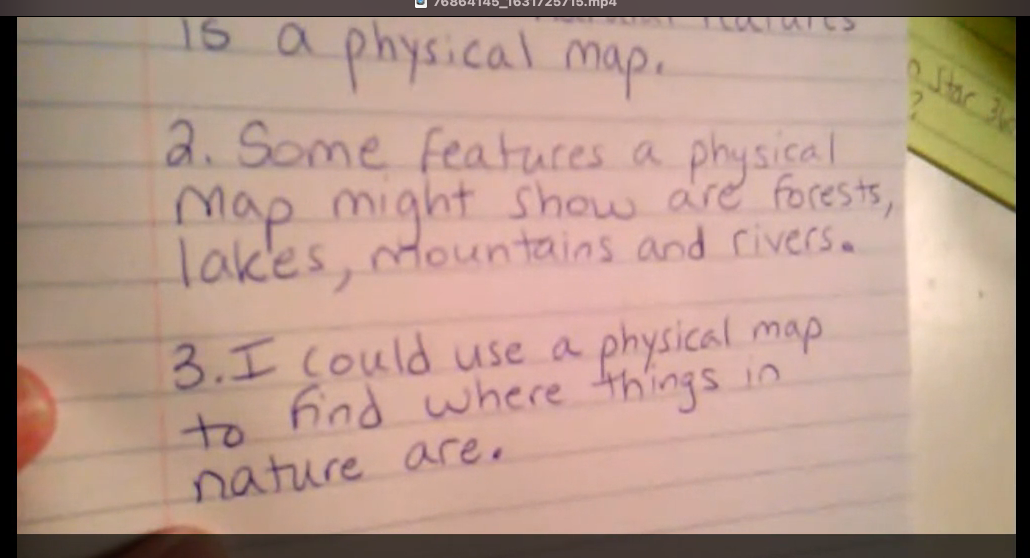 76864145_1631725715.mp4
is a physical map.
2. Some features a physical
map might show are forests,
lakes, mountains and rivers.
3. I could use a physical map
to find where things in
nature are.
Star